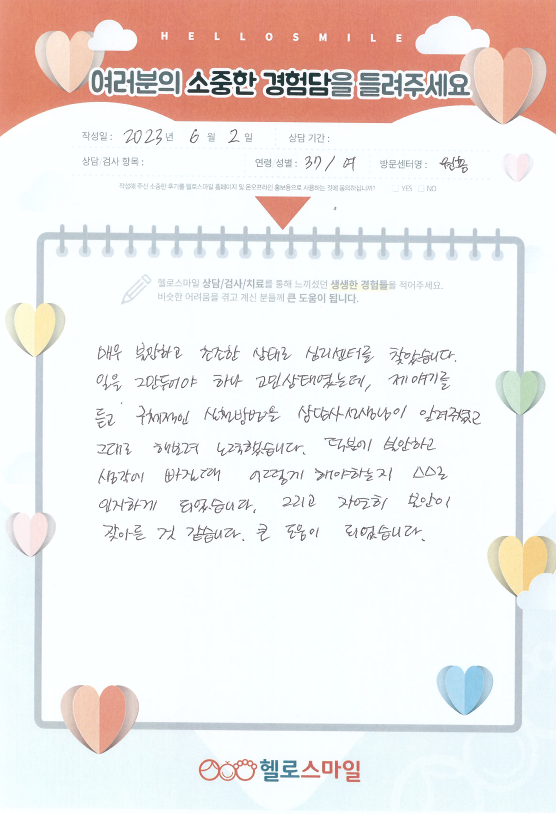 HELLOSMILE
여러분의 소중한 경험담을 들려주세요
작성일 : 2023년 6월 2일 상담 기간 :
상담 검사 항목 : 연령 성별 : 37/여 방문센터명 : 원흥
작성해 주신 소중한 후기를 헬로스마일 홈페이지 및 온오프라인 홍보용으로 사용하는 것에 동의하십니까? YES NO
헬로스마일 상담/검사/치료를 통해 느끼셨던 생생한 경험들을 적어주세요.
비슷한 어려움을 겪고 계신 분들께 큰 도움이 됩니다.
매우 불안하고 초조한 상태로 심리센터를 찾았습니다.
일을 그만두어야 하나 고민상태였는데, 제 얘기를
듣고 구체적인 실천방법을 상담사 선생님이 알려주셨고
그대로 해보려 노력했습니다. 덕분에 불안하고
생각에 빠질때 어떻게 해야하는지 스스로
인지하게 되었습니다. 그리고 자연히 불안이
잦아든 것 같습니다. 큰 도움이 되었습니다.
헬로스마일